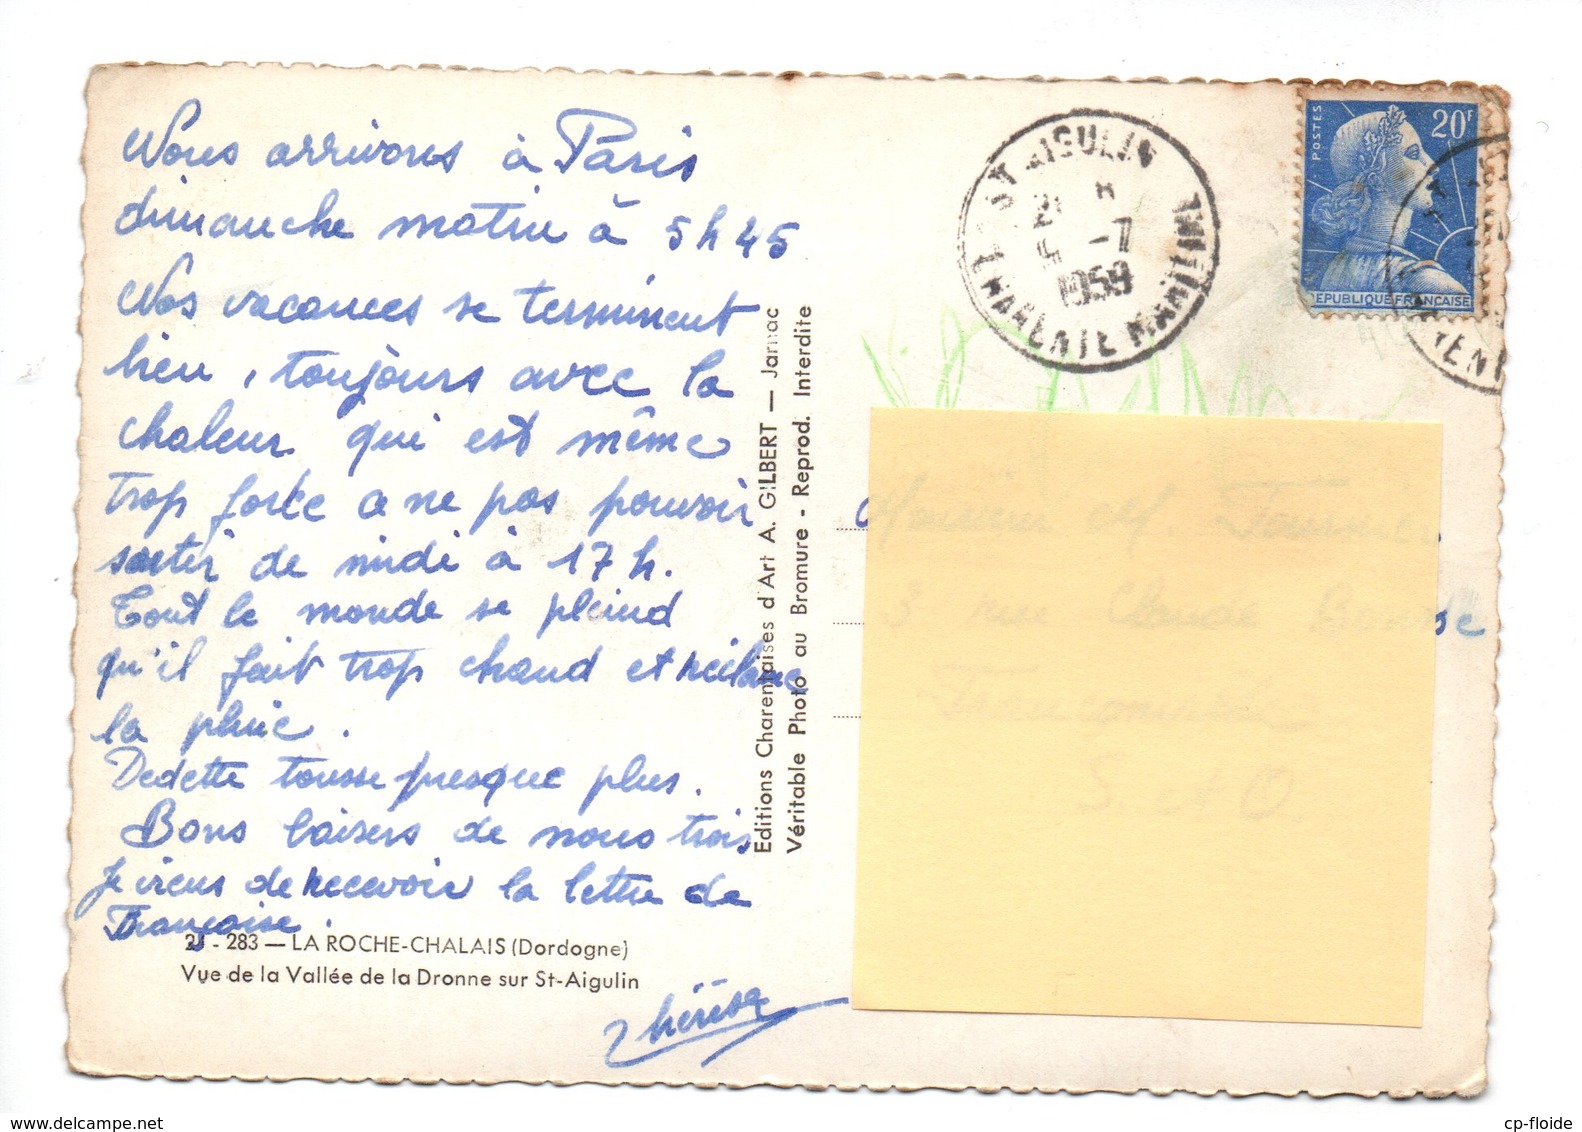 Nous arrivons à Paris
dimanche matin à 5h45
Nos vacances se terminent
bien, toujours avec la
chaleur qui est même
trop forte a ne pas pouvoir
sortir de midi à 17 h.
Tout le monde se plaind
qu'il fait trop chaud et réclame
la pluie.
Dedette tousse presque plus.
Bons baisers de nous trois
Je viens de recevoir la lettre de
Françoise.
Thérèse
283 — LA ROCHE-CHALAIS (Dordogne)
Vue de la Vallée de la Dronne sur St-Aigulin
Editions Charentaises d'Art A. GILBERT — Jarnac
Véritable Photo au Bromure - Reprod. Interdite
ST AIGULIN
-7
1959
CHARENTE MARITIME
POSTES
20F
REPUBLIQUE FRANÇAISE
Monsieur
3 rue
S. et O.
cp-floide